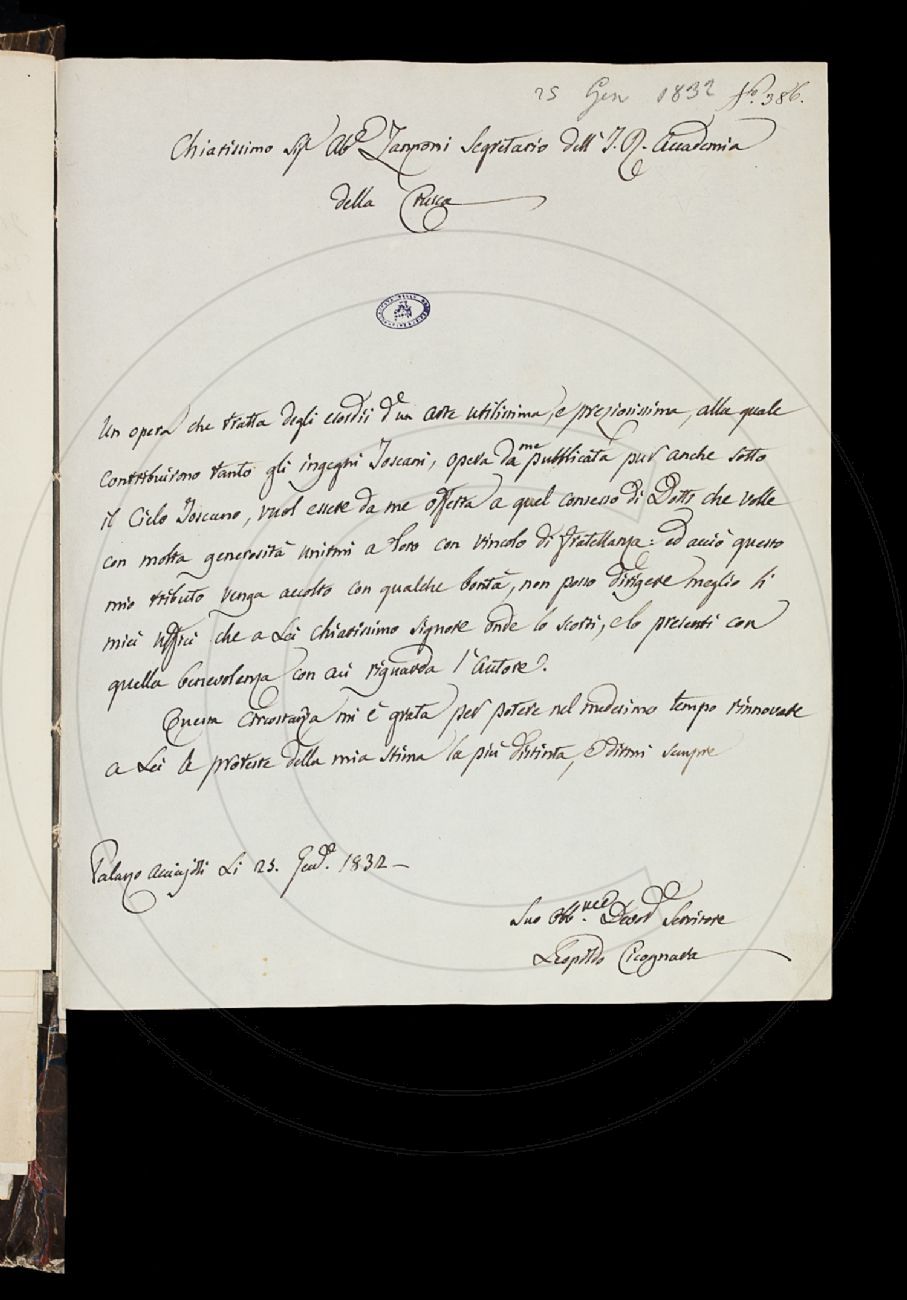 25 Gen 1832 N.º 386.
Chiarissimo Sigʳ Abᵉ Zannoni Segretario dell' I. R. Accademia
della Crusca
Un opera che tratta degli esordii d'un arte utilissima, e preziosissima, alla quale
contribuirono tanto gli ingegni Toscani, opera da me pubblicata pur anche sotto
il Cielo Toscano, vuol essere da me offerta a quel consesso di Dotti che volle
con molta generosità unirmi a loro con vincolo di fratellanza: ed acciò questo
mio tributo venga accolto con qualche bontà, non posso dirigere meglio li
miei Uffici che a Lei chiarissimo Signore onde lo scorti, e lo presenti con
quella benevolenza con cui riguarda l'Autore.
Questa circostanza mi è grata per potere nel medesimo tempo rinnovare
a Lei le proteste della mia stima la più distinta, e dirmi sempre
Palazzo Acciajoli Li 25. Gen.º 1832 –
Suo Obb.ᵐᵒ Dev.ᵐᵒ Servitore
Leopoldo Cicognara